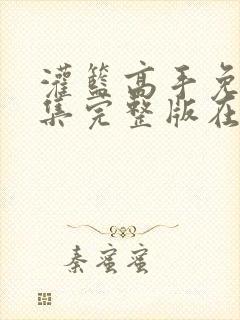 灌籃高手免
集完整版在
秦蜜蜜